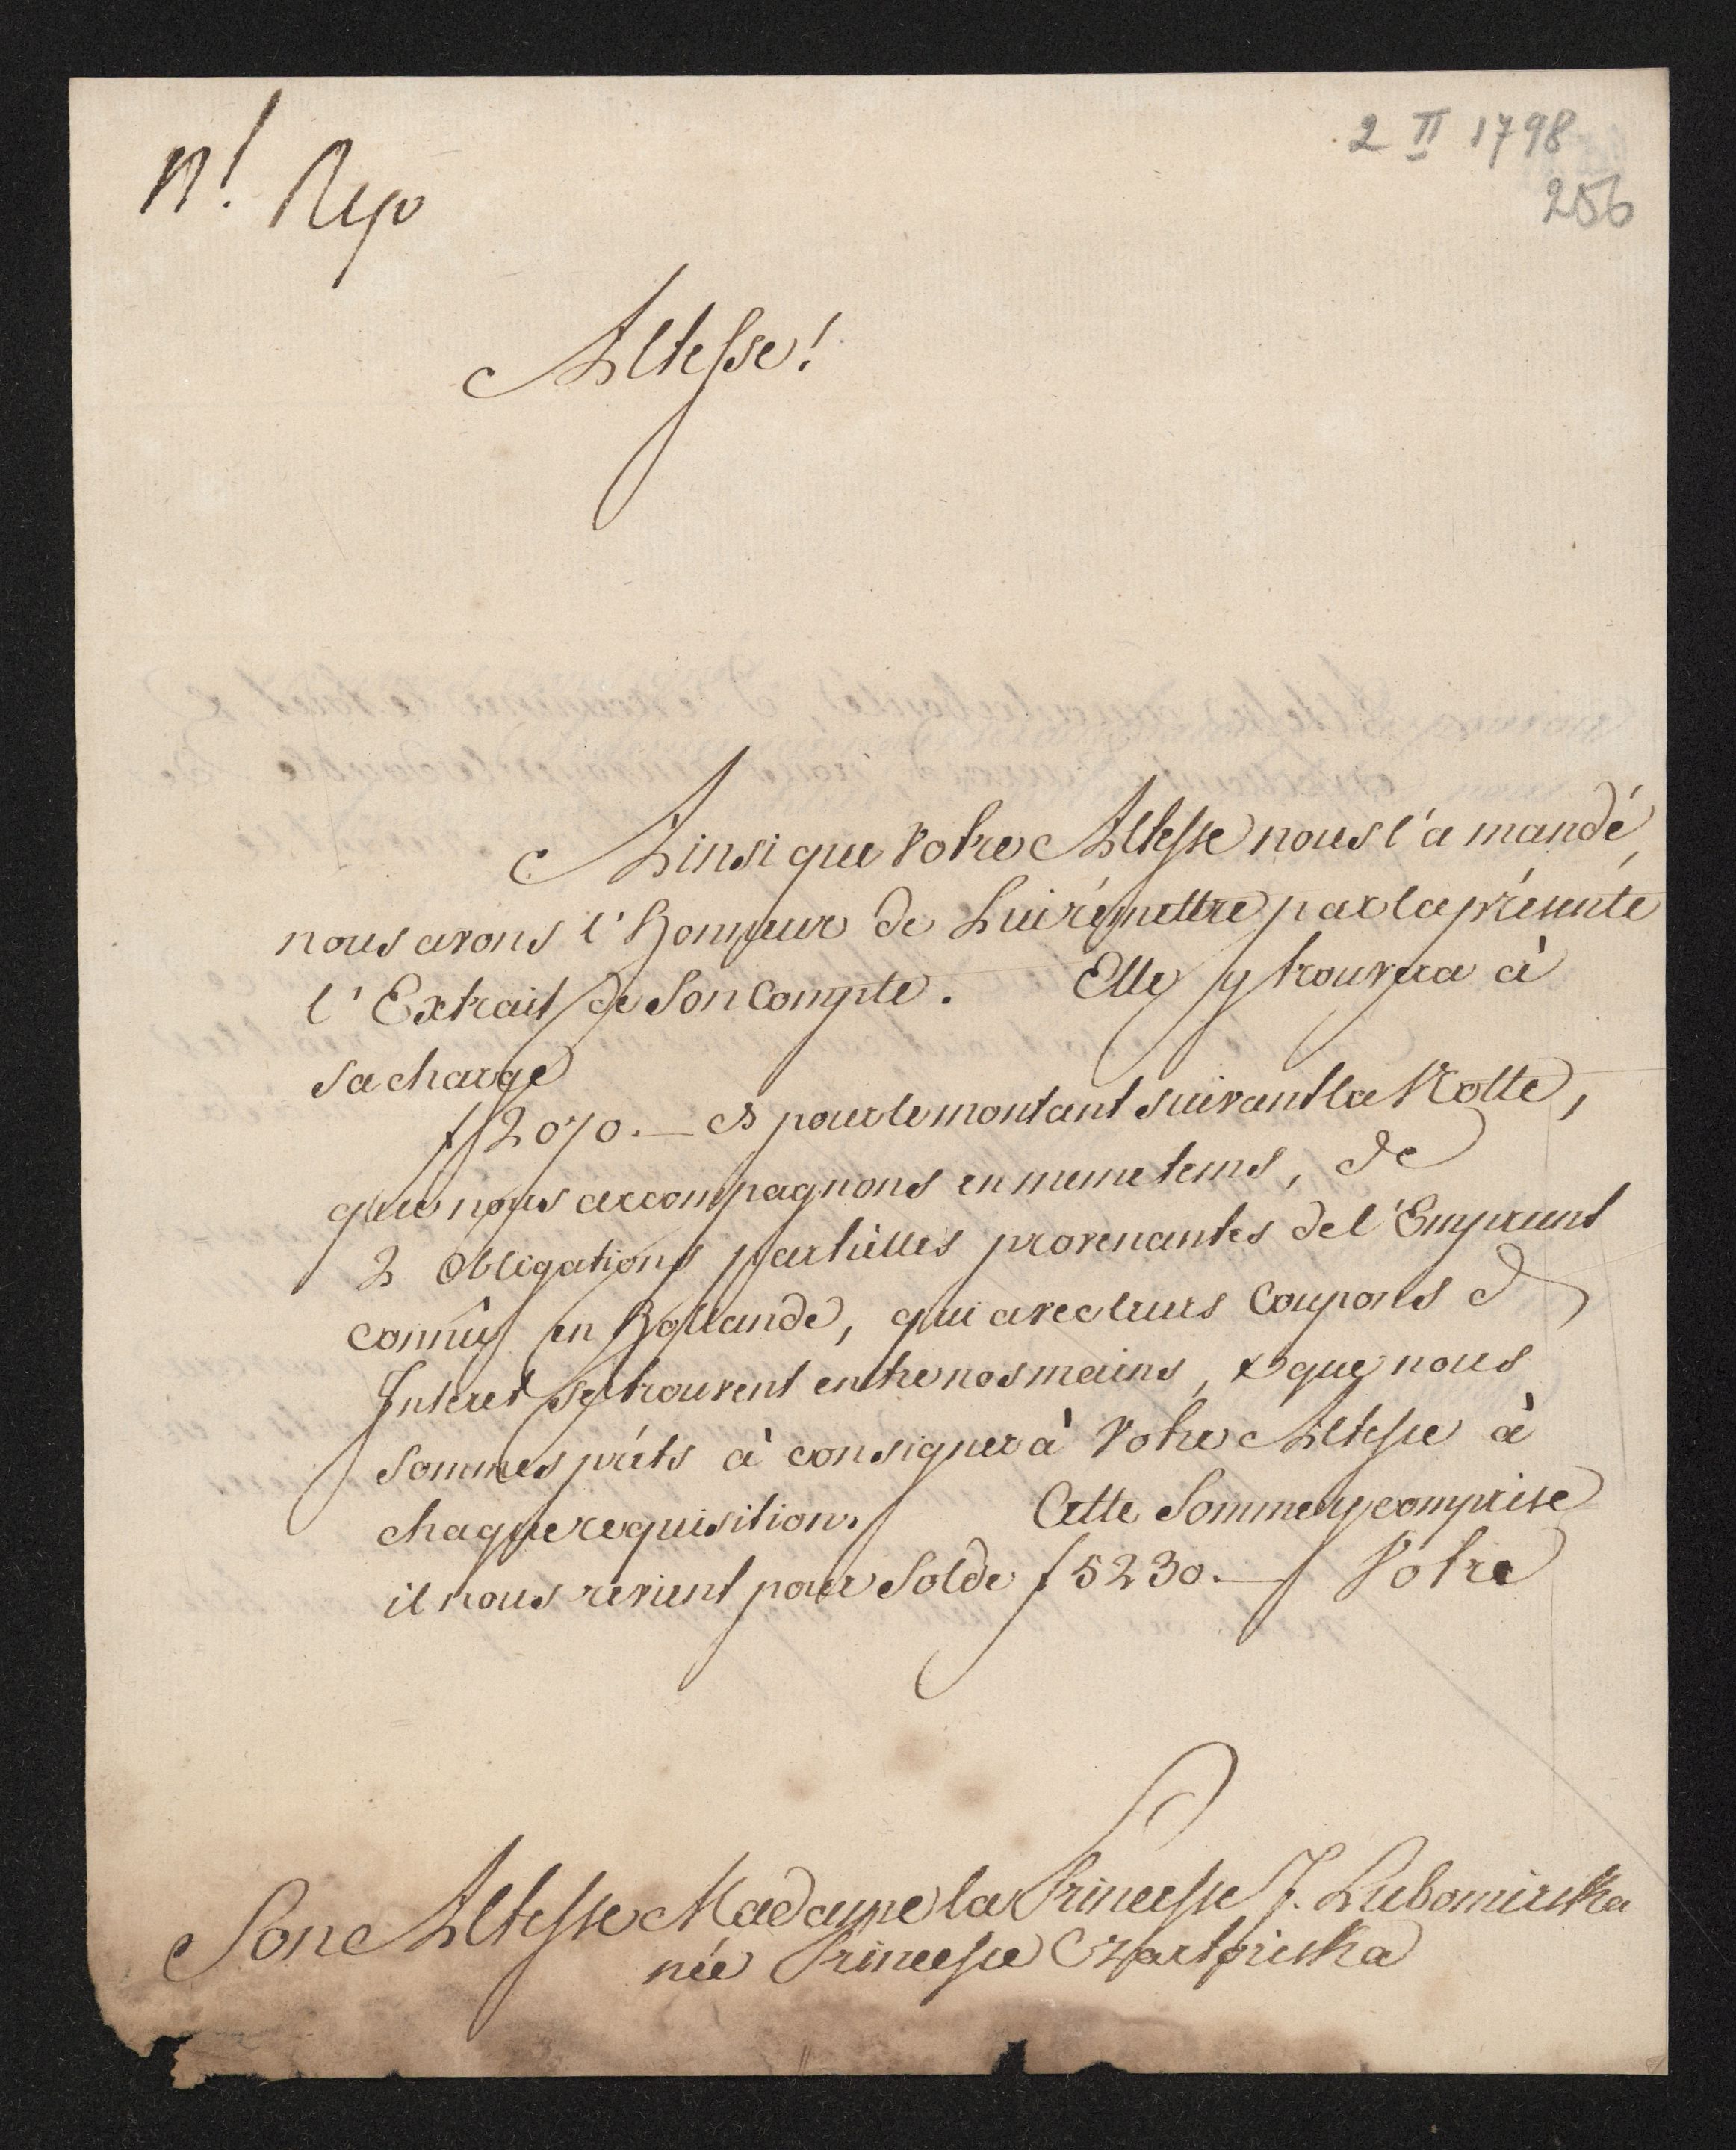 n! Repo
2 II 1798
256
Altesse!
Ainsi que Votre Altesse nous l'a mandé,
nous avons l'Honneur de Lui rémettre par la présente
l'Extrait de Son Compte. Elle y trouvera à
sa charge
f 2070.— pour le montant suivant la Notte,
que nous accompagnons en meme tems, de
2 Obligations partielles provenantes de l'Emprunt
connû en Hollande, qui avec leurs Coupons d
Interet se trouvent entre nos mains, & que nous
sommes prêts à consigner à Votre Altesse à
chaque requisition. Cette Somme y comprise
il nous revient pour Solde f 5230.— Votre
Son Altesse Madame la Princesse J. Lubomirska
née Princesse Czartoriska